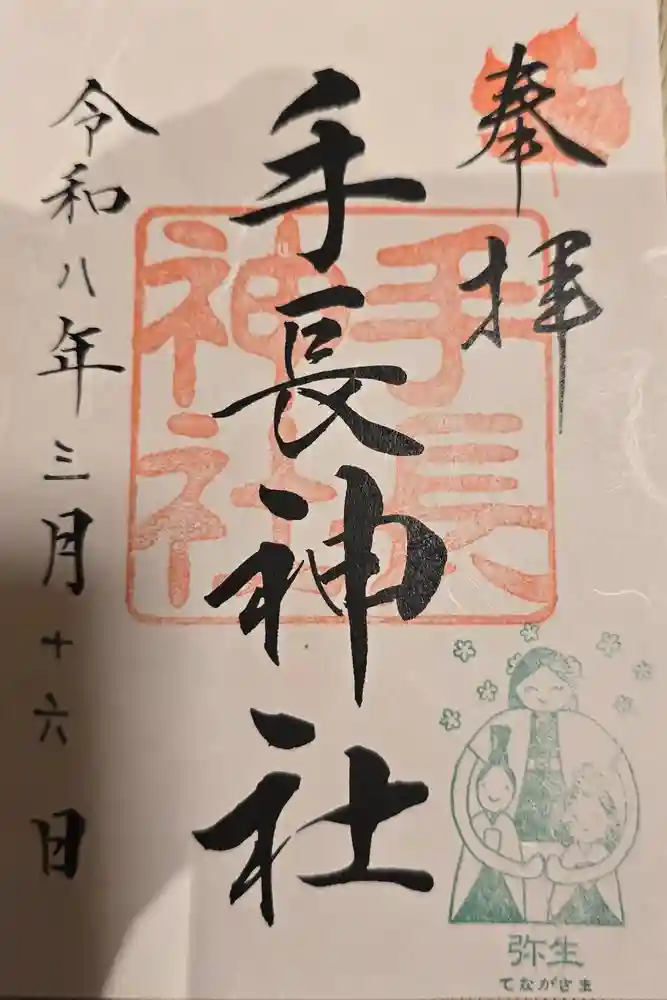 奉拝
手長神社
手長
神社
令和八年三月十六日
弥生
てながさま